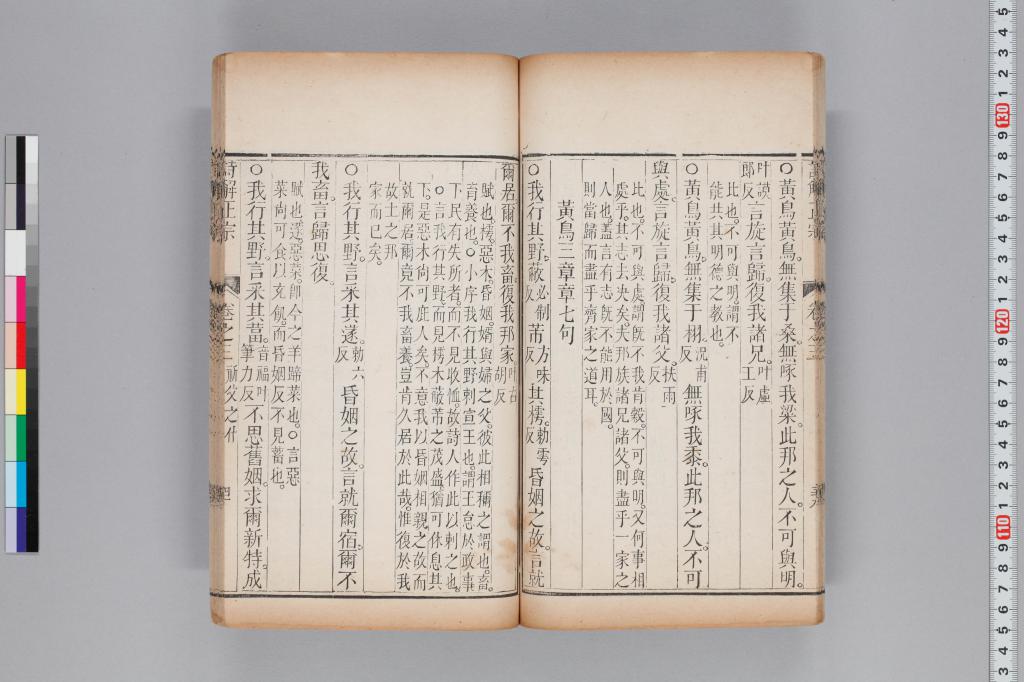 ○黃鳥黃鳥無集于桑無啄我梁此邦之人不可與明
叶謨郎反言旋言歸復我諸兄叶虛王反
比也不可與明謂不
能共其明德之教也
○黃鳥黃鳥無集于栩況甫反無啄我黍此邦之人不可
與處言旋言歸復我諸父扶雨反
比也不可與處謂旣不我肯穀不可與明又何事相
處乎其志去決矣夫邦族諸兄諸父則盡乎一家之
人也蓋言有志旣不能用於國
則當歸而盡乎齊家之道耳
黃鳥三章章七句
○我行其野蔽必制反芾方味反其樗勅雩反昏姻之故言就
爾居爾不我畜復我邦家叶古胡反
賦也樗惡木昏姻婿與婦之父彼此相稱之謂也畜
育養也○小序我行其野刺宣王也謂王怠於政事
下民有失所者而不見收恤故詩人作此以刺之也
○言我行其野而見樗木蔽芾之茂盛猶可休息其
下是惡木尚可庇人矣不意我以昏姻相親之故而
就爾居爾竟不我畜養豈肯久居於此哉惟復於我
故土之邦
家而已矣
○我行其野言采其蓫勅六反昏姻之故言就爾宿爾不
我畜言歸思復
賦也蓫惡菜卽今之羊蹄菜也○言惡
菜尚可食以充飢而昏姻反不見蓄也
○我行其野言采其葍音福叶筆力反不思舊姻求爾新特成
詩解正宗 卷之三 祈父之什 四